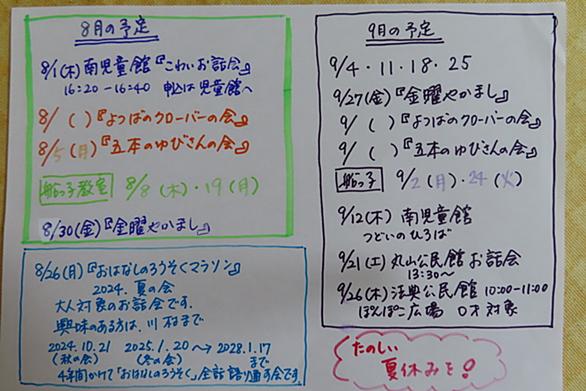 8月の予定
8/1(木)南児童館『こわいお話会』
16:20-16:40 申込は児童館へ
8/ ( )『よつばのクローバーの会』
8/5(月)『五本のゆびさんの会』
船っ子教室 8/8(木)・19(月)
8/30(金)『金曜やかまし』
8/26(月)『おはなしのろうそくマラソン』
2024. 夏の会
大人対象のお話会です.
興味のある方は、川村まで
2024.10.21 2025.1.20〜→2028.1.17
(秋の会) (冬の会) まで
4年間かけて「おはなしのろうそく」全話語り通す会です
9月の予定
9/4・11・18・25
9/27(金)『金曜やかまし』
9/ ( )『よつばのクローバーの会』
9/ ( )『五本のゆびさんの会』
船っ子 9/2(月)・24(火)
9/12(木) 南児童館
つどいのひろば
9/21(土)丸山公民館お話会
13:30〜
9/26(木)法典公民館 10:00-11:00
ぽんぽこ広場 0才対象
たのしい
夏休みを!